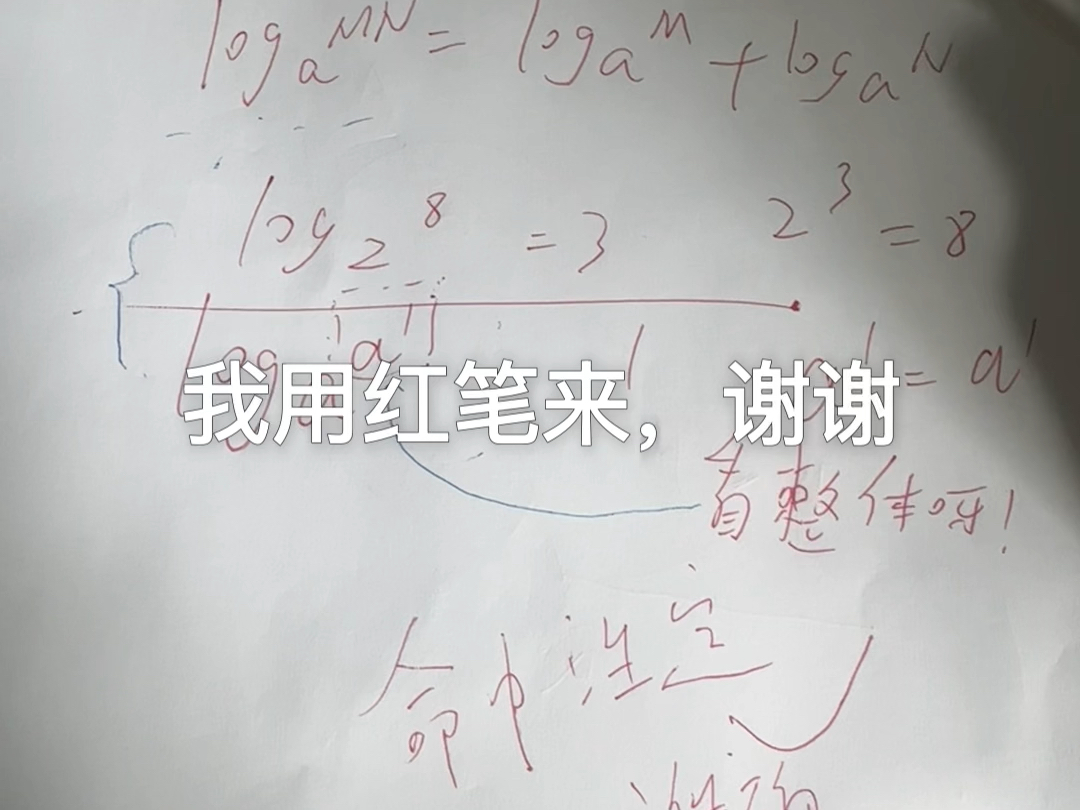 log_a^MN = log_a^M + log_a^N
log_2^8 = 3    2^3 = 8
log_a a^1    1    a^1 = a^1
我用红笔来，谢谢
看整体呀!
命中注定